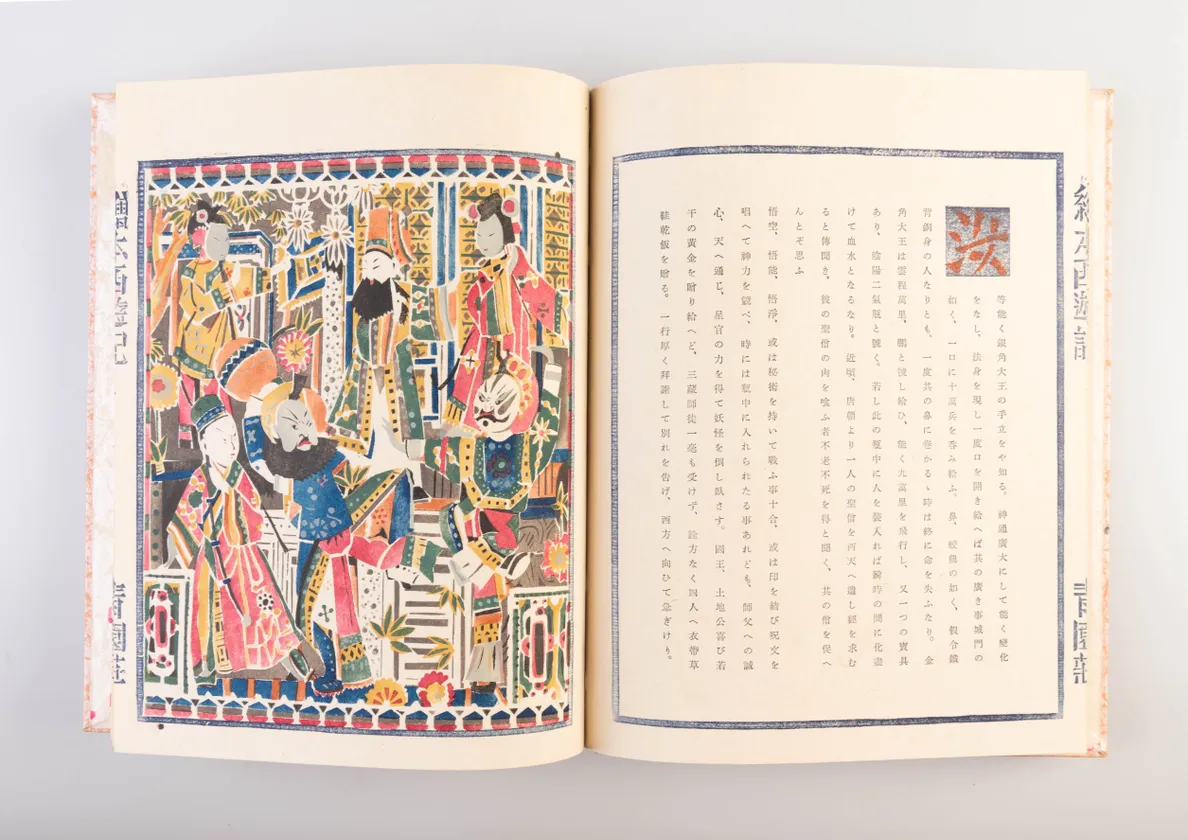 繪本西遊記
青園莊
汝
等能く銀角大王の手立をや知る。神通廣大にして能く變化
をなし、法身を現し一度口を開き給へば其の廣き事城門の
如く、一口に十萬兵を呑み給ふ。鼻、蛟龍の如く、假令鐵
背銅身の人なりとも、一度其の鼻に卷かるゝ時は終に命を失ふなり。金
角大王は雲程萬里、鵬と號し給ひ、能く九萬里を飛行し、又一つの寶具
あり、陰陽二氣瓶と號く。若し此の甕中に人を裝入れば瞬時の間に化盡
けて血水となるなり。近頃、唐朝より一人の聖僧を西天へ遣し經を求む
ると傳聞き、彼の聖僧の肉を喰ふ者不老不死を得と聞く、其の僧を俟へ
んとぞ思ふ
悟空、悟能、悟淨、或は秘術を持いて戰ふ事十合、或は印を結び呪文を
唱へて神力を競べ、時には甕中に入れられたる事あれども、師父への誠
心、天へ通じ、星官の力を得て妖怪を倒し臥さす。國王、土地公喜び若
干の黃金を贈り給へど、三藏師徒一毫も受けず、詮方なく四人へ衣帶草
鞋乾飯を贈る。一行厚く拜謝して別れを告げ、西方へ向ひて急ぎけり。
繪本西遊記
青園莊